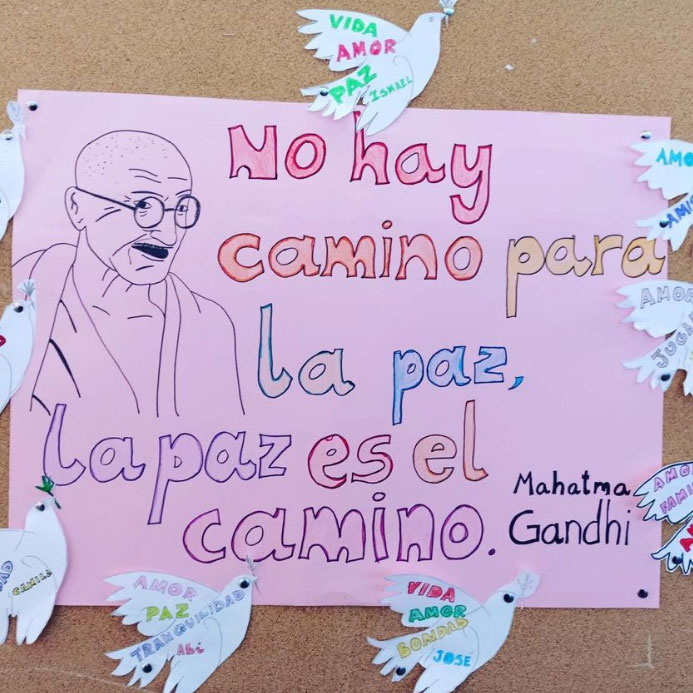 VIDA
AMOR
PAZ
ISMAEL
No hay
camino para
la paz,
la paz es el
camino.
Mahatma
Gandhi
AMOR
JUGA
AMOR
FAMI
CAMILA
AMOR
PAZ
TRANQUILIDAD
Abi
VIDA
AMOR
BONDAD
JOSÉ